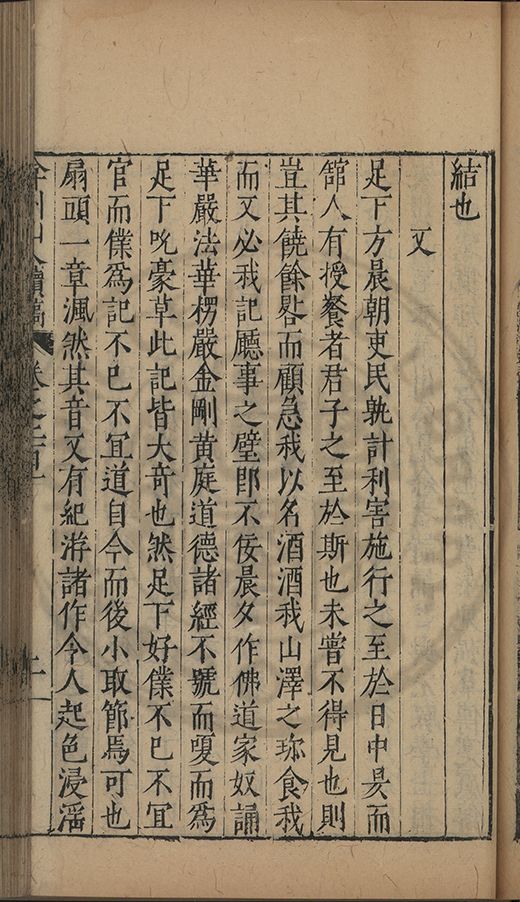 結也
又
足下方晨朝吏民孰計利害施行之至於日中昃而
舘人有授餐者君子之至於斯也未嘗不得見也則
豈其饒餘晷而顧急我以名酒酒我山澤之珎食我
而又必我記廳事之壁郎不佞晨夕作佛道家奴誦
華嚴法華楞嚴金剛黃庭道德諸經不號而嗄而爲
足下吮豪草此記皆大奇也然足下好僕不已不冝
官而僕爲記不已不冝道自今而後小取節焉可也
扇頭一章渢然其音又有紀游諸作令人起色浸淫
弇州山人續稿 卷之二百